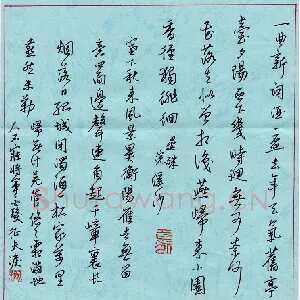 一曲新词酒一杯去年天氣舊亭
臺夕陽西下幾時迴無可奈何
花落去似曾相识燕歸來小園
香徑獨徘徊 晏殊
浣溪沙
塞下秋来風景異衡陽雁去無留
意四面邊聲連角起千嶂裏长
烟落日孤城闭濁酒一杯家萬里
燕然未勒
歸無计羌管悠悠霜满地
人不寐將軍白髮征夫淚